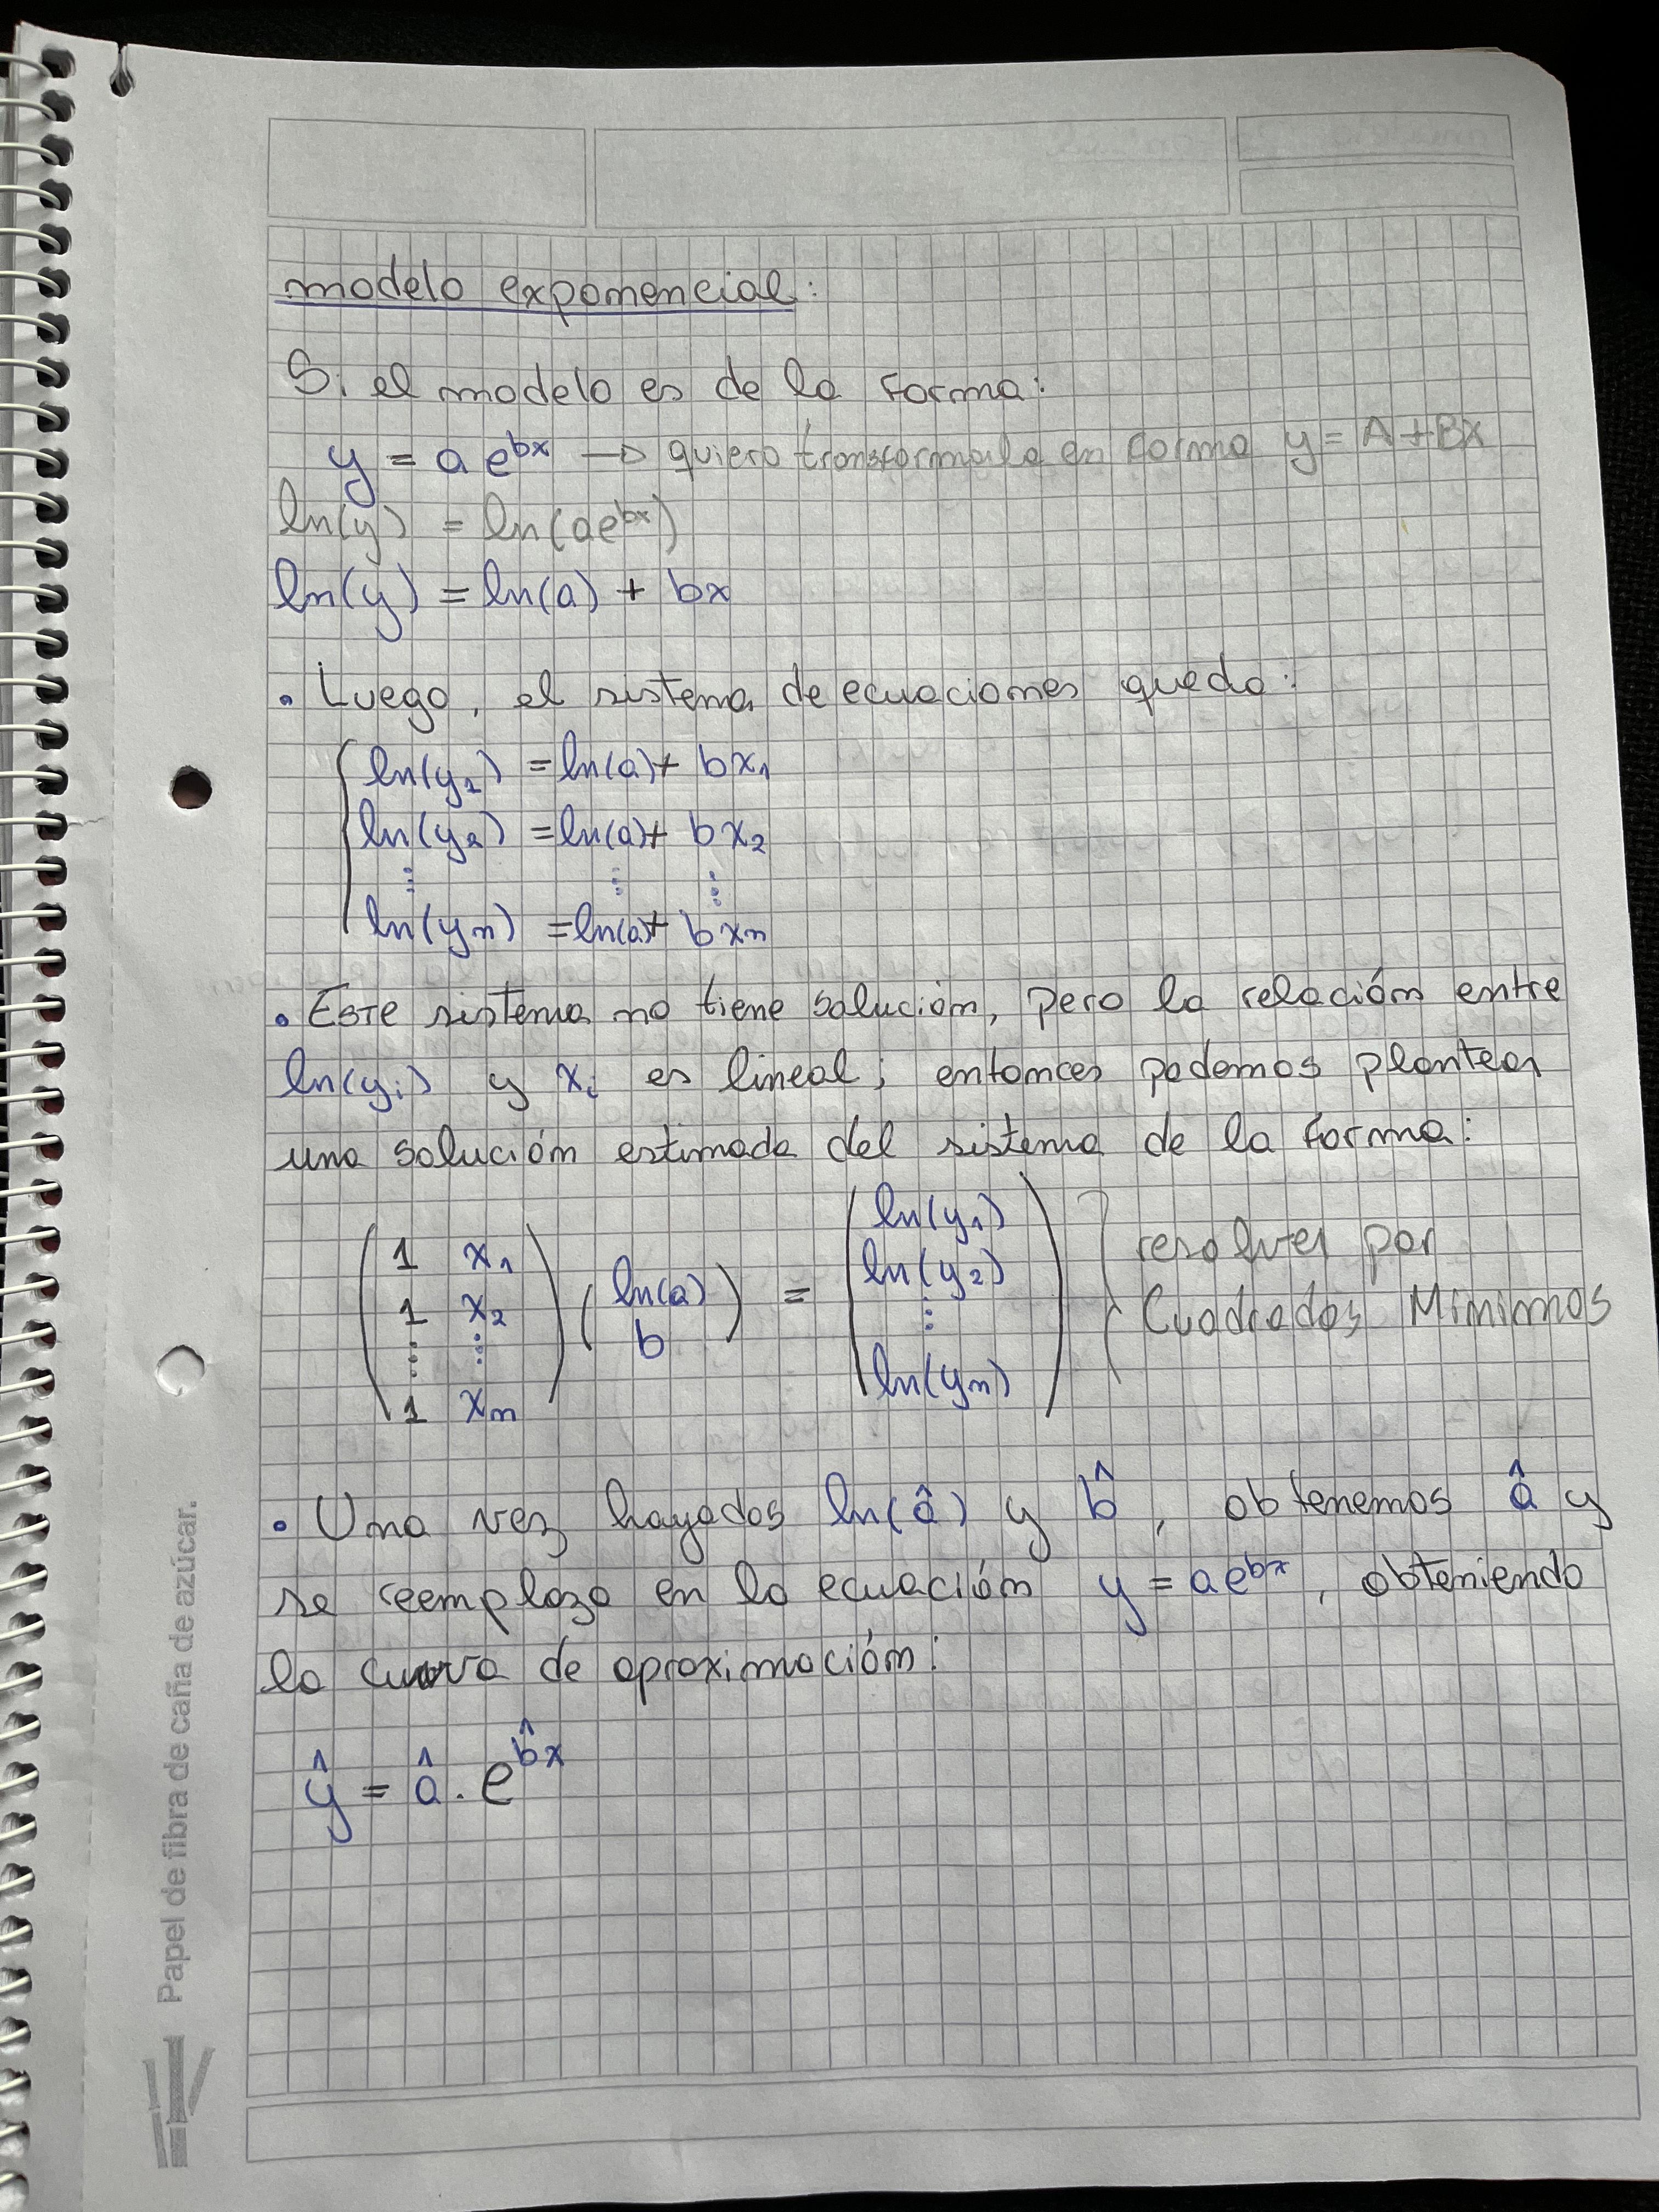 modelo exponencial:
Si el modelo es de la forma:
y = a e^{bx} → quiero transformarla en forma y = A + Bx
ln(y) = ln(ae^{bx})
ln(y) = ln(a) + bx
• Luego, el sistema de ecuaciones queda:
ln(y₂) = ln(a) + bx₁
ln(y₂) = ln(a) + bx₂
⋮ ⋮ ⋮
ln(yₙ) = ln(a) + bxₙ
• Este sistema no tiene solución, pero la relación entre
ln(yᵢ) y xᵢ es lineal; entonces podemos plantear
una solución estimada del sistema de la forma:
( 1 x₁ ; 1 x₂ ; ⋮ ⋮ ; 1 xₙ ) ( ln(a) ; b ) = ( ln(y₁) ; ln(y₂) ; ⋮ ; ln(yₙ) ) } resolver por
Cuadrados Mínimos
• Una vez hayados ln(â) y b̂, obtenemos â y
se reemplaza en la ecuación y = ae^{bx}, obteniendo
la curva de aproximación:
ŷ = â . e^{b̂x}
Papel de fibra de caña de azúcar.